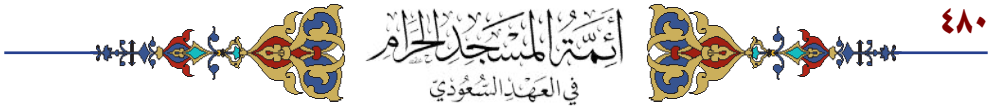 ٤٨٠
أئمة المسجد الحرام
في العهد السعودي